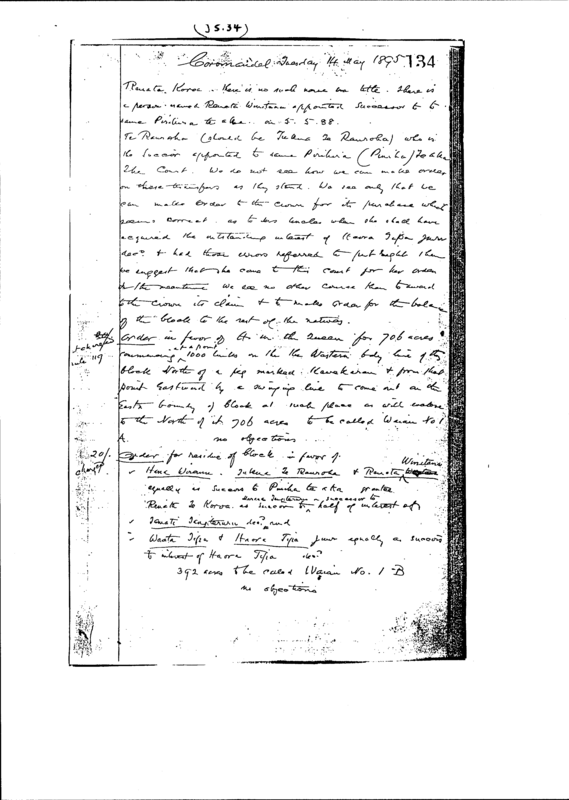 (JS.34)
Coromandel Tuesday 14 May 1895 134
Renata Koroa. There is no such name in title. There is
a person named Renata Winitana appointed successor to
same Pirihira te aka. on 5.5.88.
Te Rauroha (should be Te Rauroha) who is
the Successor appointed to same Pirihira (Piniha) Te aka
The Court. We do not see how we can make orders
on these transfers as they stand. We see only that we
can make order to the crown for its purchase what
seems correct. as to when she shall have
acquired the outstanding interest of Haora Tipa Junr
decd & had those errors referred to put right then
we suggest that she come to this Court for her order
In the meantime we see no other course than to award
to the crown its claim & to make order for the balance
of the block to the rest of the natives.
Order in favor of H. M. the Queen for 706 acres
commencing at a point 1000 links on the Western bdy line of the
block North of a peg marked Kawakawa & from that
point Eastward by a swinging line to come out on the
Eastn boundy of block at such place as will enclose
to the North of it 706 acres to be called Waiau No 1
A. no objections
rule 119
20/- charged
Order for residue of block in favor of
Winitana
Hene Wirama. Te Rauroha & Renata
equally as success to Piniha te aka
Renata Te Koroa as successor to half of interest of
decd and
Waata Tipa & Haora Tipa Junr equally as success
to interest of Haora Tipa decd
392 acres to be called Waiau No. 1-B
no objections